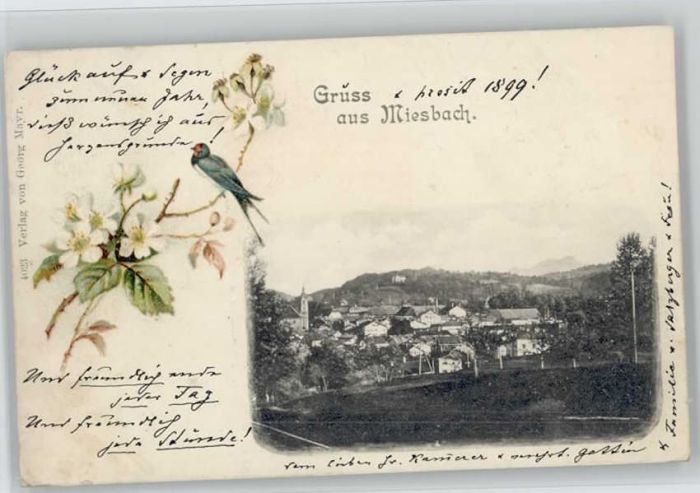 Glück auf & Segen
zum neuen Jahr,
dieß wünsch ich aus
Herzensgrunde!
Gruss & prosit 1899!
aus Miesbach.
4023 Verlag von Georg Mayr.
Und freundlich ende
jeder Tag
Und freundlich
jede Stünde!
dem lieben Hr. Kamerer & verehrt. Gattin
& Familie v. Salzberger & Frau!